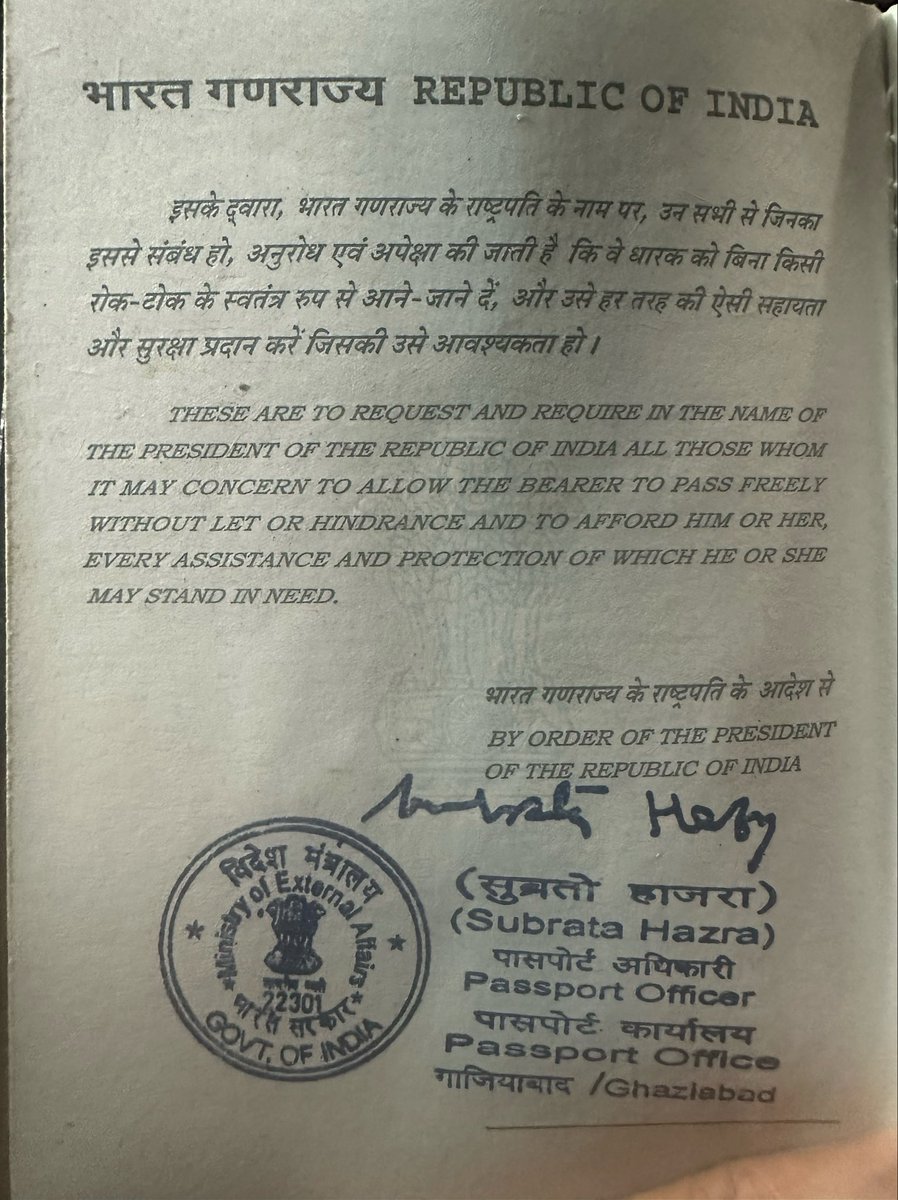 भारत गणराज्य REPUBLIC OF INDIA
इसके द्वारा, भारत गणराज्य के राष्ट्रपति के नाम पर, उन सभी से जिनका
इससे संबंध हो, अनुरोध एवं अपेक्षा की जाती है कि वे धारक को बिना किसी
रोक-टोक के स्वतंत्र रुप से आने-जाने दें, और उसे हर तरह की ऐसी सहायता
और सुरक्षा प्रदान करें जिसकी उसे आवश्यकता हो।
THESE ARE TO REQUEST AND REQUIRE IN THE NAME OF
THE PRESIDENT OF THE REPUBLIC OF INDIA ALL THOSE WHOM
IT MAY CONCERN TO ALLOW THE BEARER TO PASS FREELY
WITHOUT LET OR HINDRANCE AND TO AFFORD HIM OR HER,
EVERY ASSISTANCE AND PROTECTION OF WHICH HE OR SHE
MAY STAND IN NEED.
भारत गणराज्य के राष्ट्रपति के आदेश से
BY ORDER OF THE PRESIDENT
OF THE REPUBLIC OF INDIA
विदेश मंत्रालय
Ministry of External Affairs
22301
भारत सरकार
GOVT. OF INDIA
(सुब्रतो हाजरा)
(Subrata Hazra)
पासपोर्ट अधिकारी
Passport Officer
पासपोर्ट कार्यालय
Passport Office
गाजियाबाद /Ghaziabad